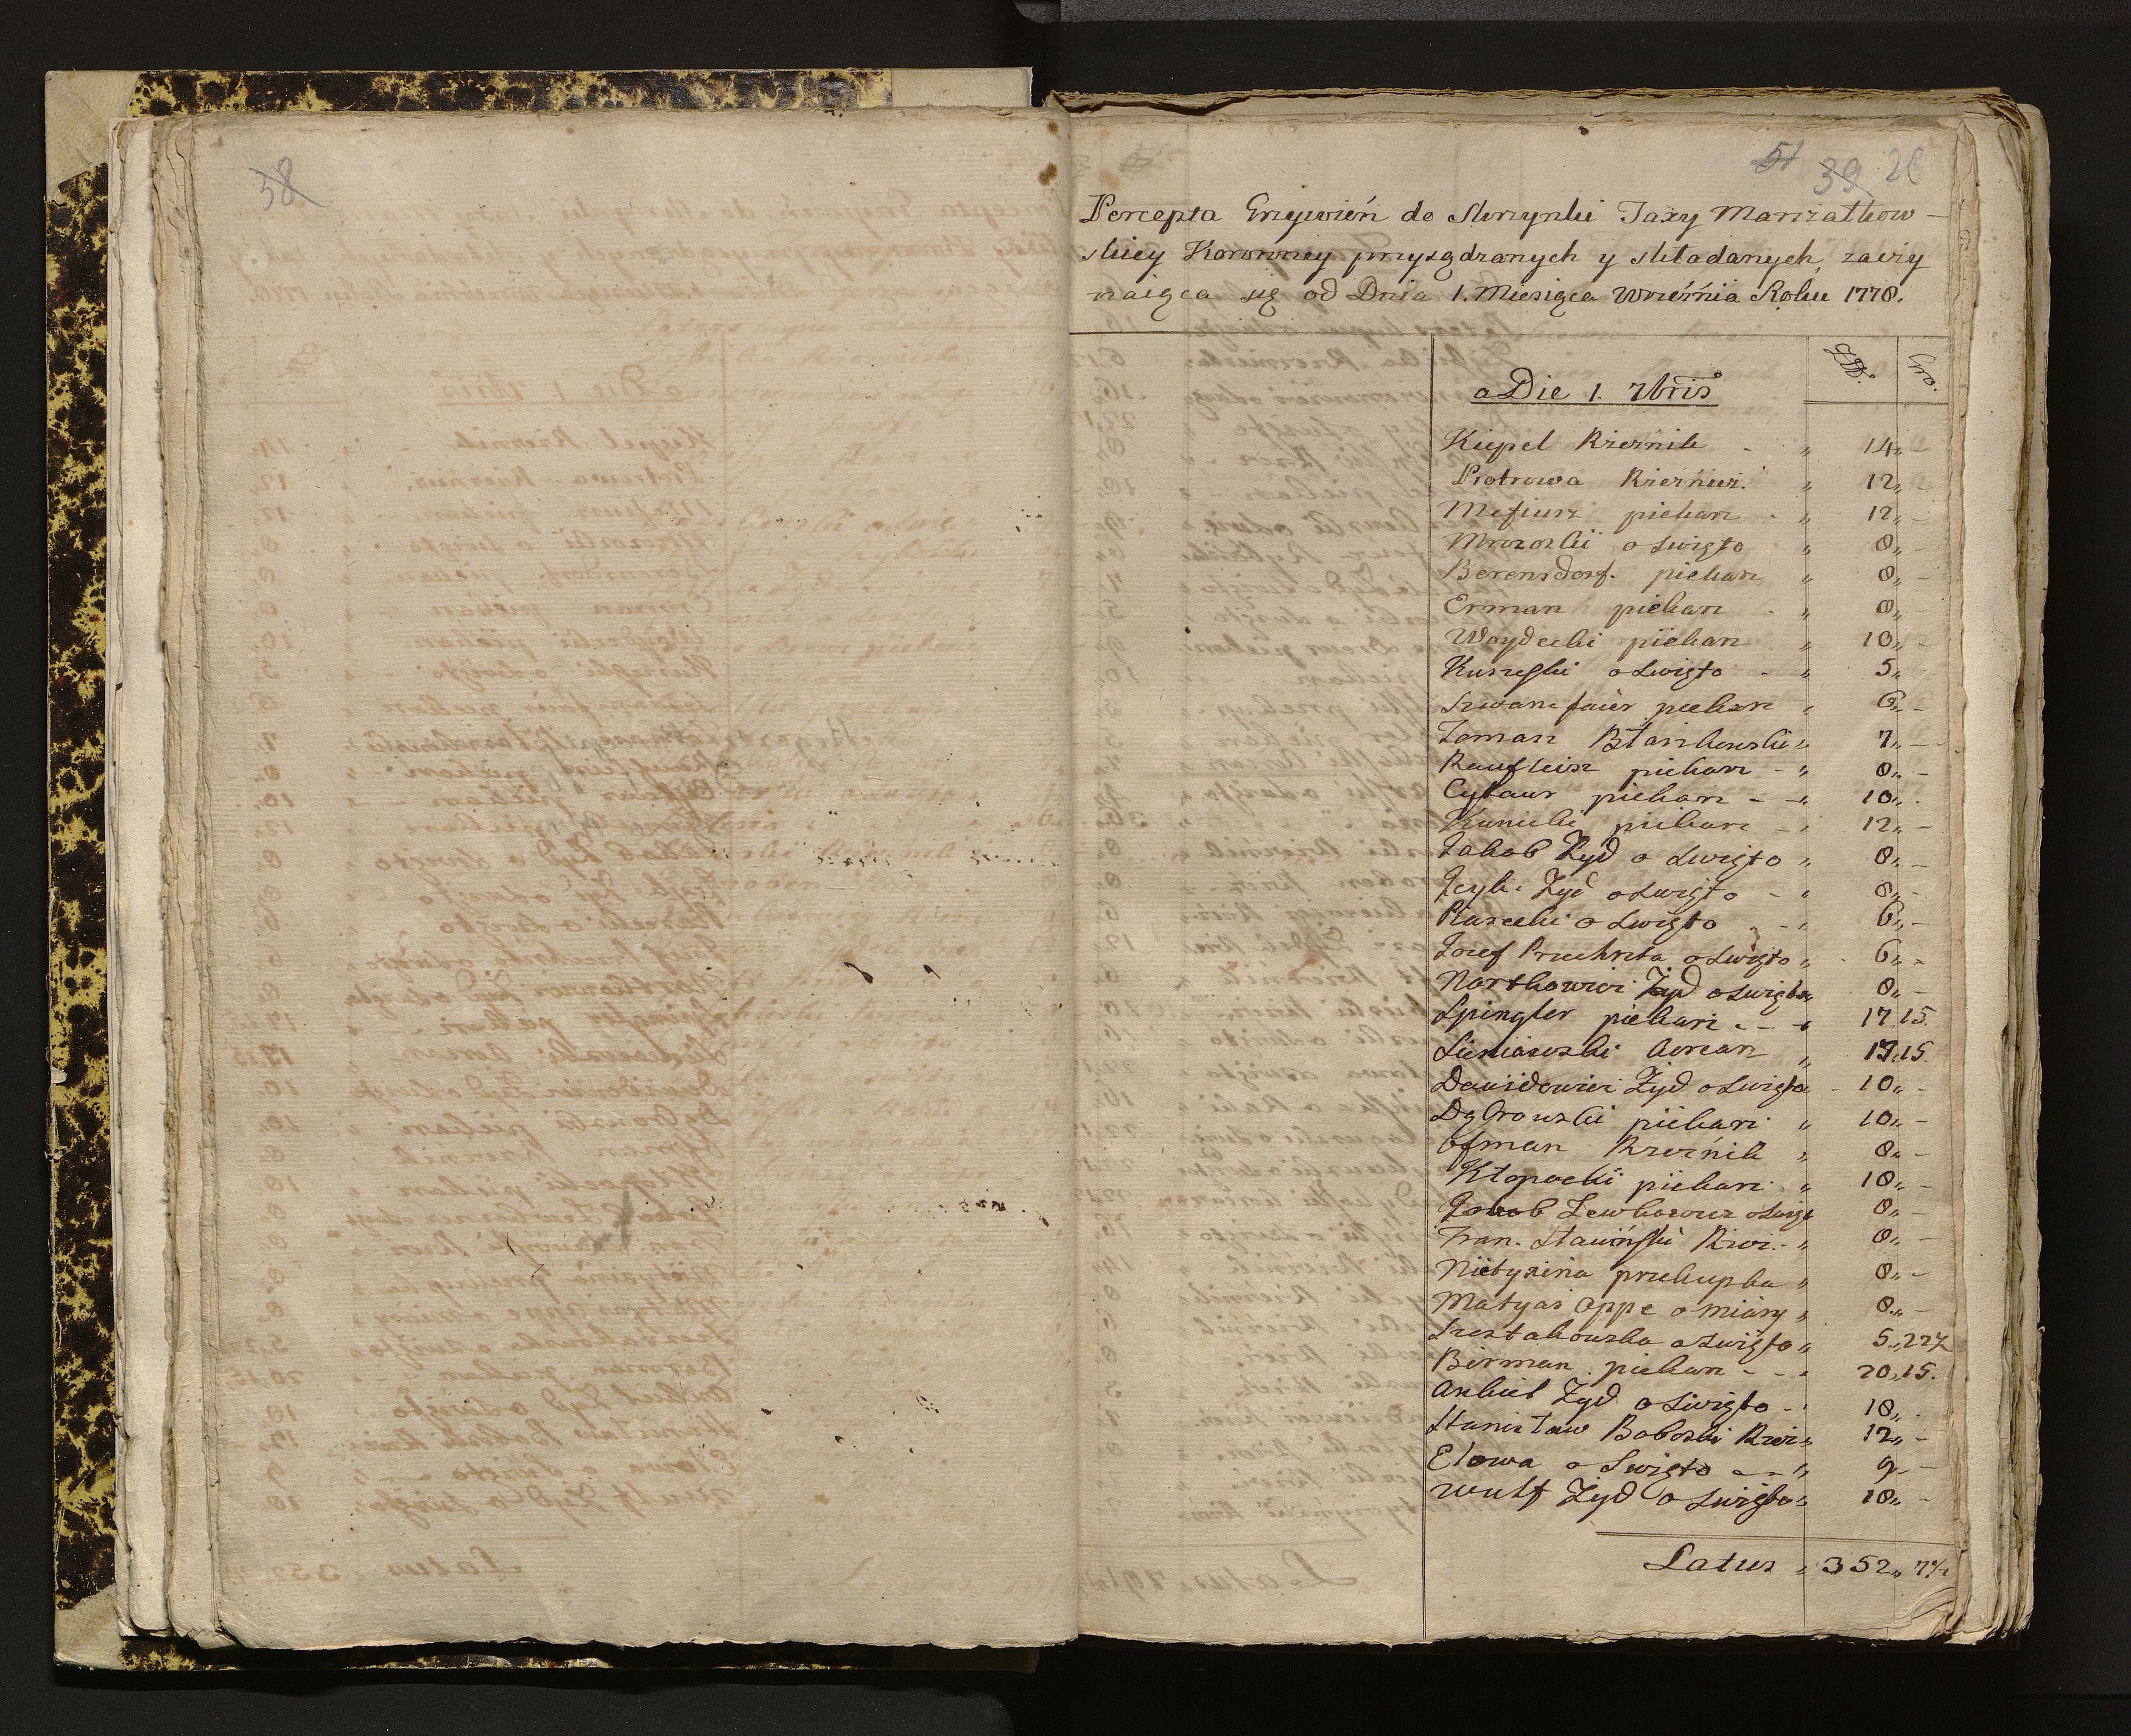 38
51 39 28
Percepta Grzywień do Skrzynki Taxy Marszałkow-
skiey Koronney przysądzanych y składanych, zaczy
naiąca się od Dnia 1. Miesiąca Września Roku 1778.
Złł. Gro.
a Die 1. 7bris
Kiepel Rzeznik - " 14„ -
Piotrowa Rzeźnicz. " 12„ -
Mefiusz piekarz - " 12„ -
Mrozoski o Swięto " 8„ -
Berensdorf. piekarz " 8„ -
Erman piekarz - " 8„ -
Woydecki piekarz " 10„ -
Kuszeski o Swięto - " 5„
Szwancfaier piekarz " 6„ -
Toman Błankowski " 7„ -
Raufleisz piekarz - " 8„ -
Cytaur piekarz - - " 10„ -
Kunicki piekarz - " 12„ -
Jakob Żyd o Swięto " 8„ -
Icyk Żyd o Swięto - " 8„ -
Piasecki o Swięto - " 6„ -
Jozef Przechrzta o Swięto " 6„ -
Nortkowicz Żyd o Swięto " 8„ -
Spingler piekarz - - " 17„ 15.
Sieniawski " 17„ 15.
Dawidowicz Żyd o Swięto - 10„ -
Dąbrowski piekarz " 10„ -
Ofman Rzeźnik " 8„ -
Kłopocki piekarz " 10„ -
Jakob Lewkowicz o Swięt 8„ -
Fran. Stawiński Rzez. - " 8„ -
przekupka " 8„ -
Matyas Oppe o miary " 8„ -
Szostakowska o Swięto " 5„ 22½
Birman piekarz - - " 20„ 15.
Ankiel Żyd o Swięto - " 10„ -
Stanisław Boboski Rzez " 12„ -
Elowa o Swięto - - " 9„ -
Wulf Żyd o Swięto " 10„ -
Latus " 352„ 7½